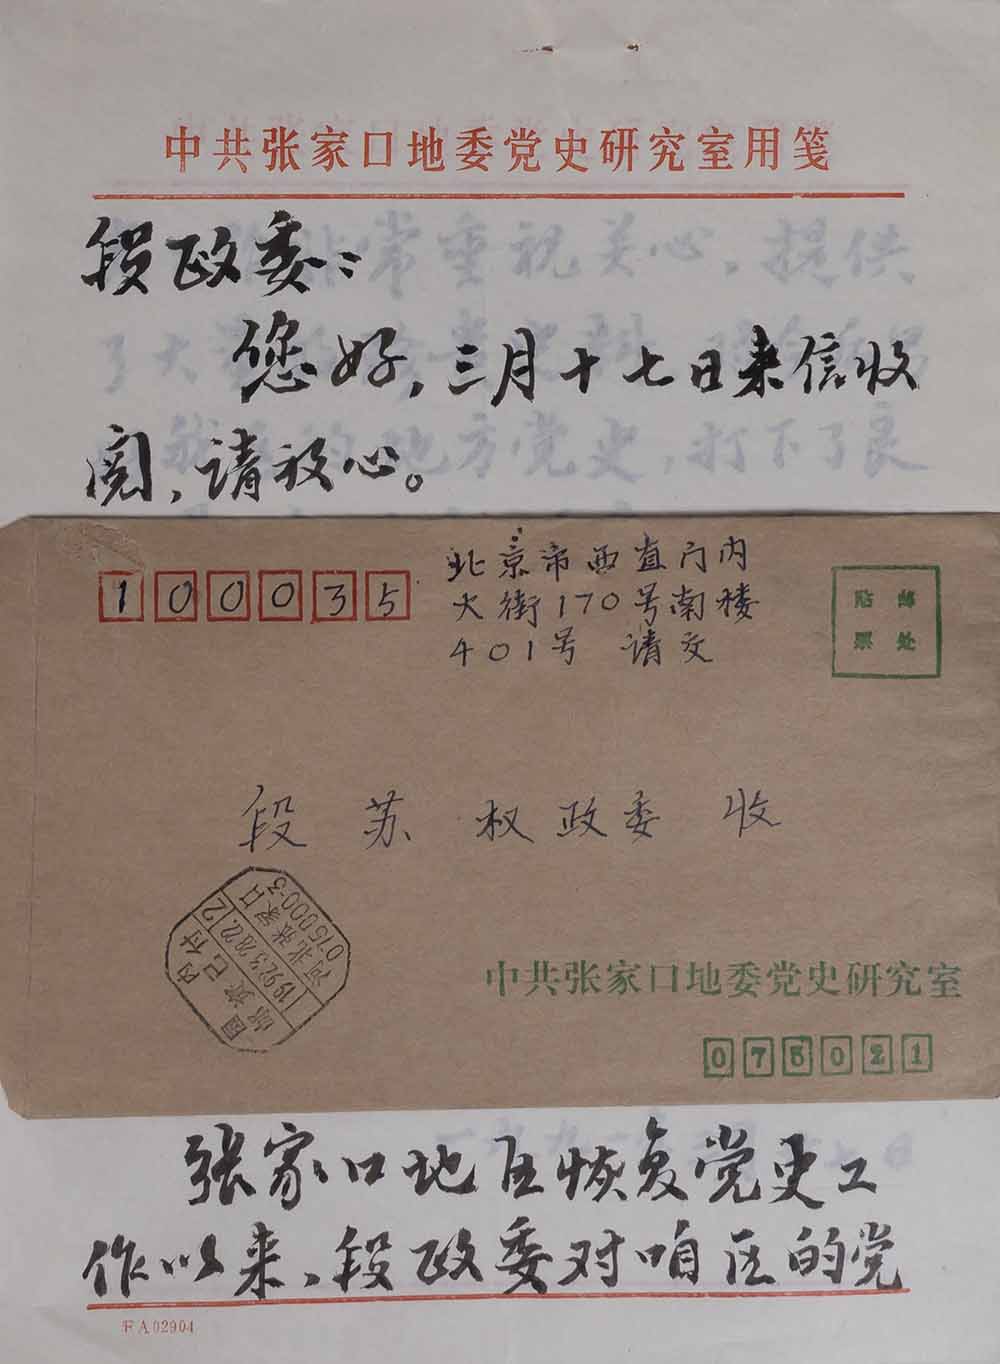 中共张家口地委党史研究室用笺
段政委：
您好，三月十七日来信收
阅，请放心。
北京市西直门内
大街170号南楼
401号 请交
100035
贴邮
票处
段苏权政委 收
国内
邮资已付
1992.3.28.12
河北张家口
075000-3
中共张家口地委党史研究室
075021
张家口地区恢复党史工
作以来，段政委对咱区的党
FA02904